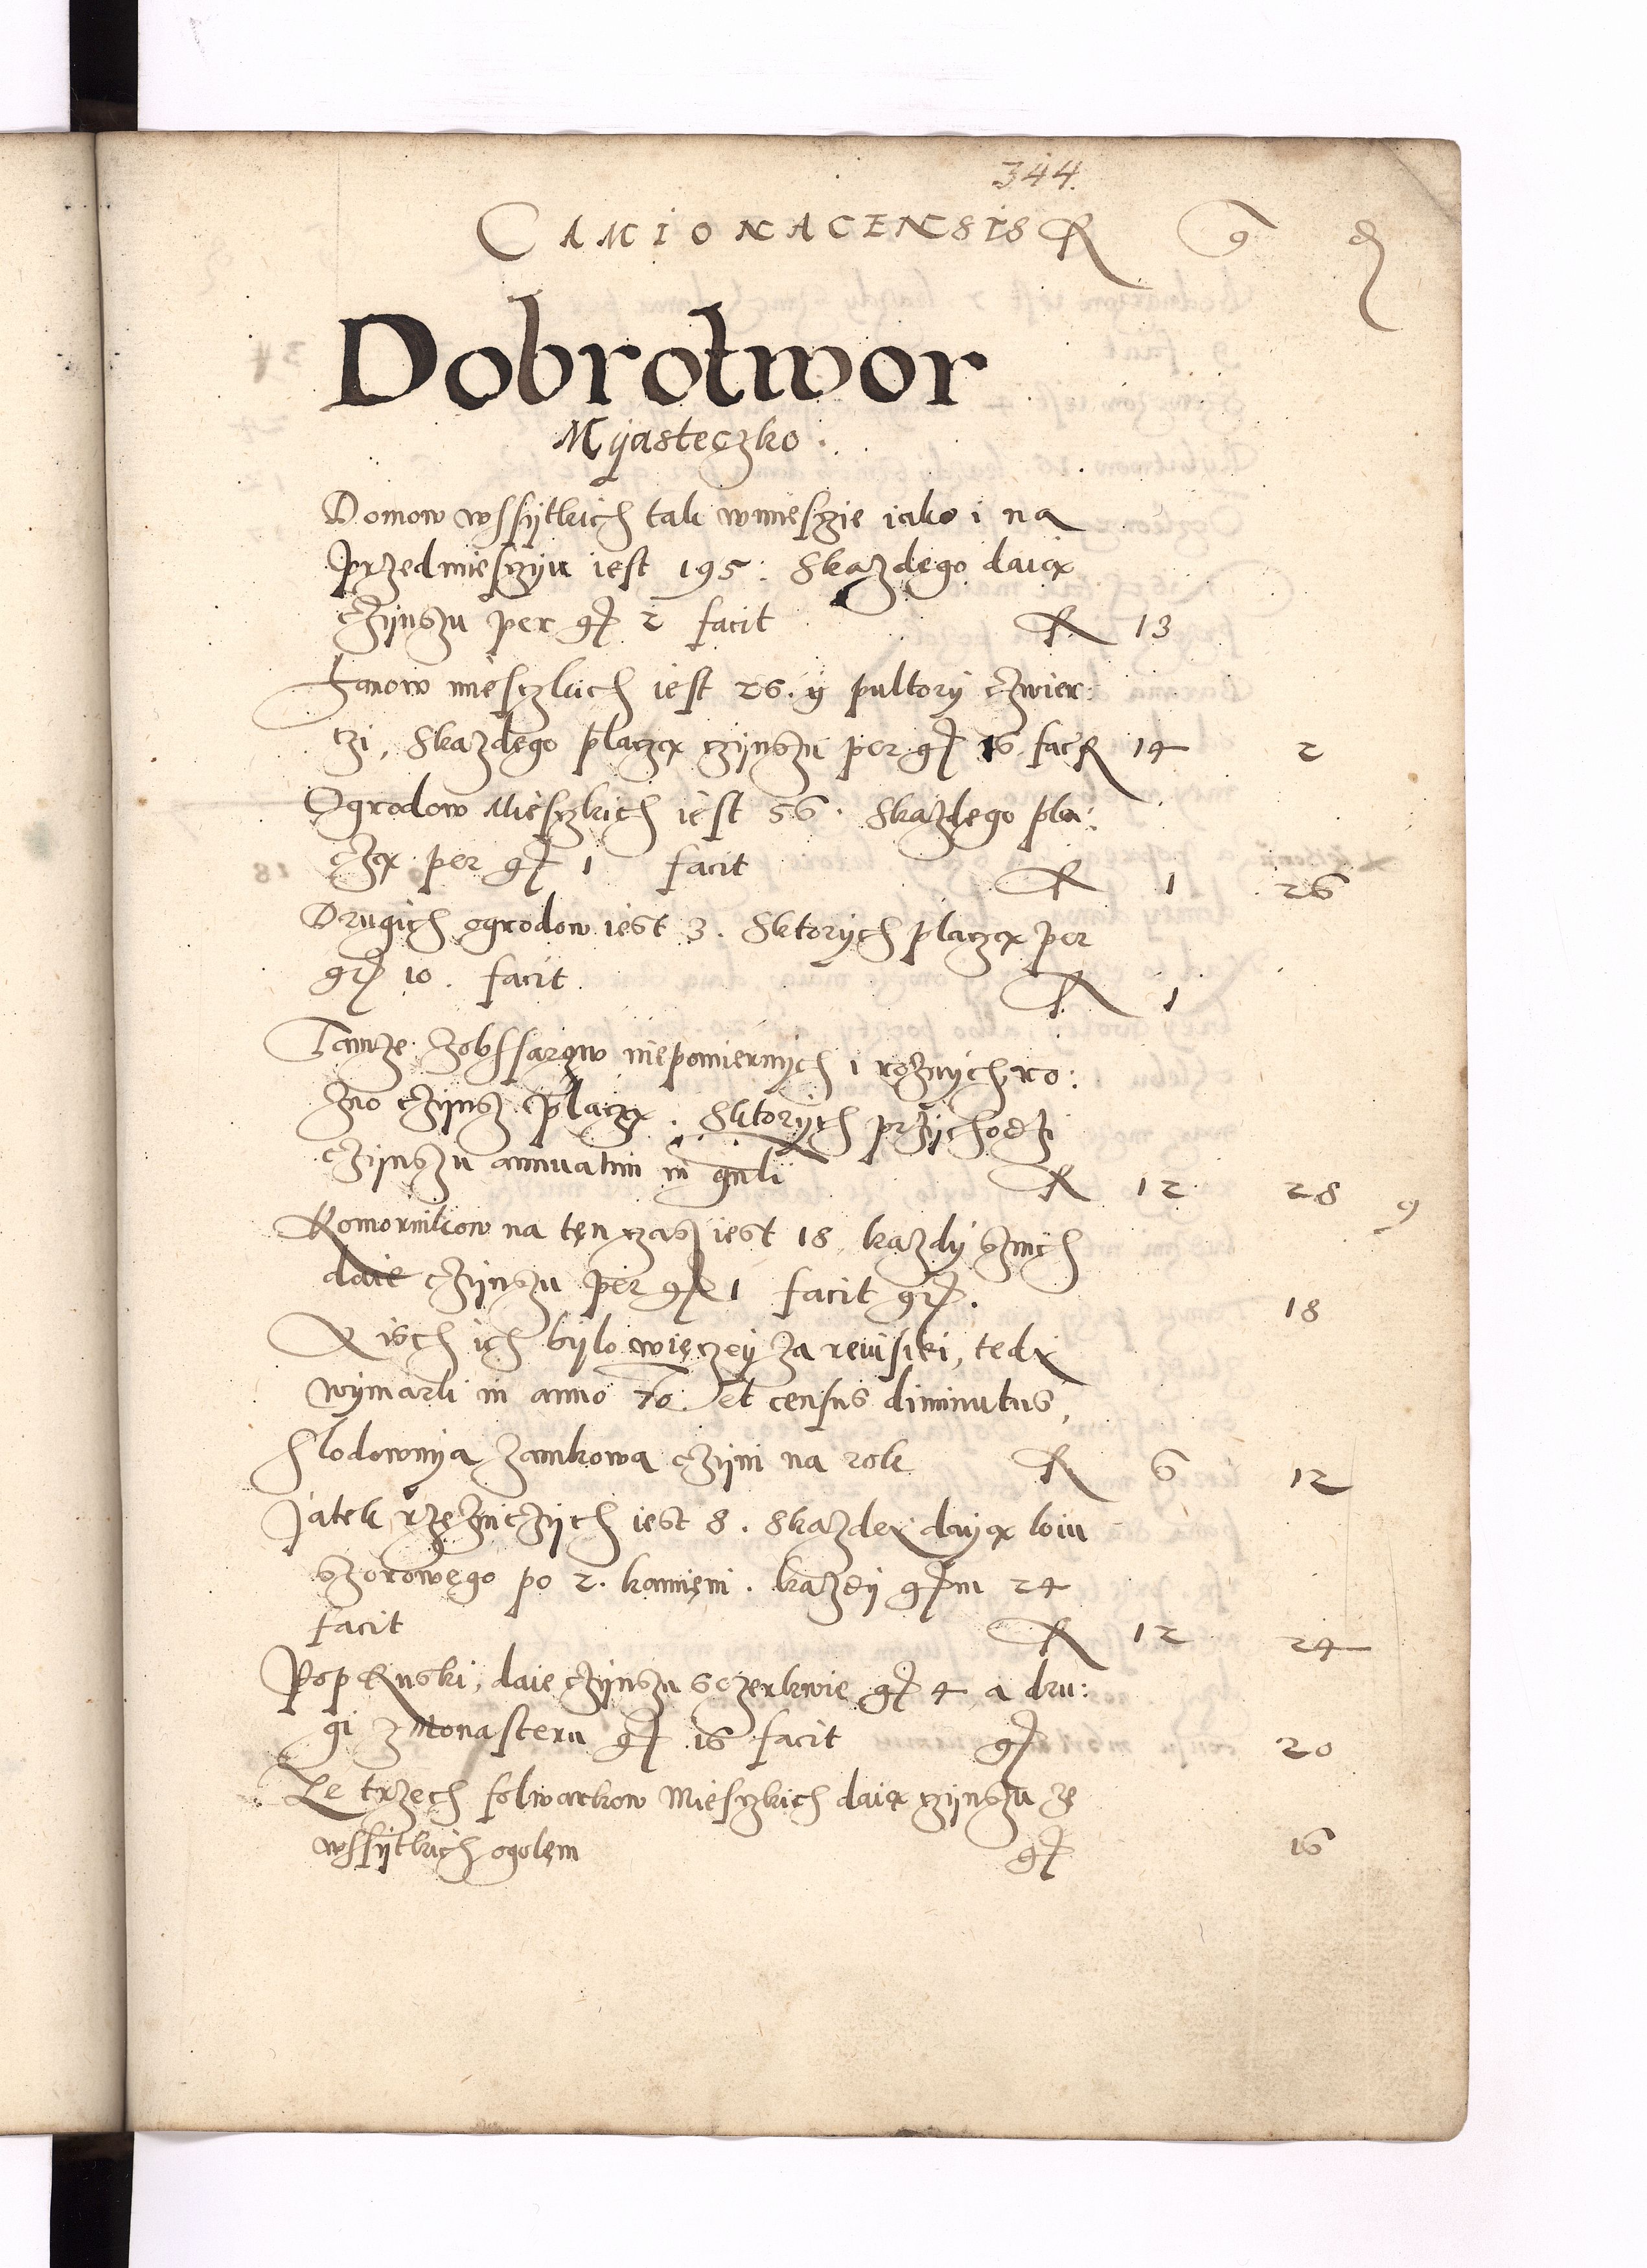 344.
CAMIONACENSIS R g d
Dobrotwor
Mÿasteczko.
Domow wssÿtkich tak wmiesczie iako i na
przedmiesczÿu iest 195. Skazdego daią
czÿnszu per gr 2 facit R 13
Łanow miesczkich iest 26. ÿ pultorÿ czwier:
czi, Skazdego placzą czÿnszu per gr 16 fac R 14 2
Ogrodow Miesczkich iest 56. Skazdego pla:
czą per gr 1 facit R 1 26
Drugich ogrodow iest 3. Sktorÿch placzą per
gr 10. facit R 1
Tamze zobssarow niepomiernÿch i roznÿch, ro:
zno czÿnsz placzą. Sktorÿch przÿchodzi
czÿnszu annuatim in gnli R 12 28 9
Komornikow na ten czas iest 18, kazdÿ sznich
daie czÿnszu per gr 1 facit gr. 18
A isch ich bÿlo więczeÿ za reuisiki, tedÿ
wÿmarli in anno 70. et census diminutus,
Slodownÿa zamkowa czÿni na rok R 6 12
Jatek rzezniczÿch iest 8. Skazdeÿ daÿą loiu
szorowego po 2. kamieni. kazdÿ grm 24
facit R 12 24
Pop Ruski, daie czÿnszu sczerkwie gr 4 a dru:
gi z Monasteru gr 16 facit gr 20
Ze trzech folwarkow Miesczkich daią czÿnszu ze
wssÿtkich ogolem gr 16